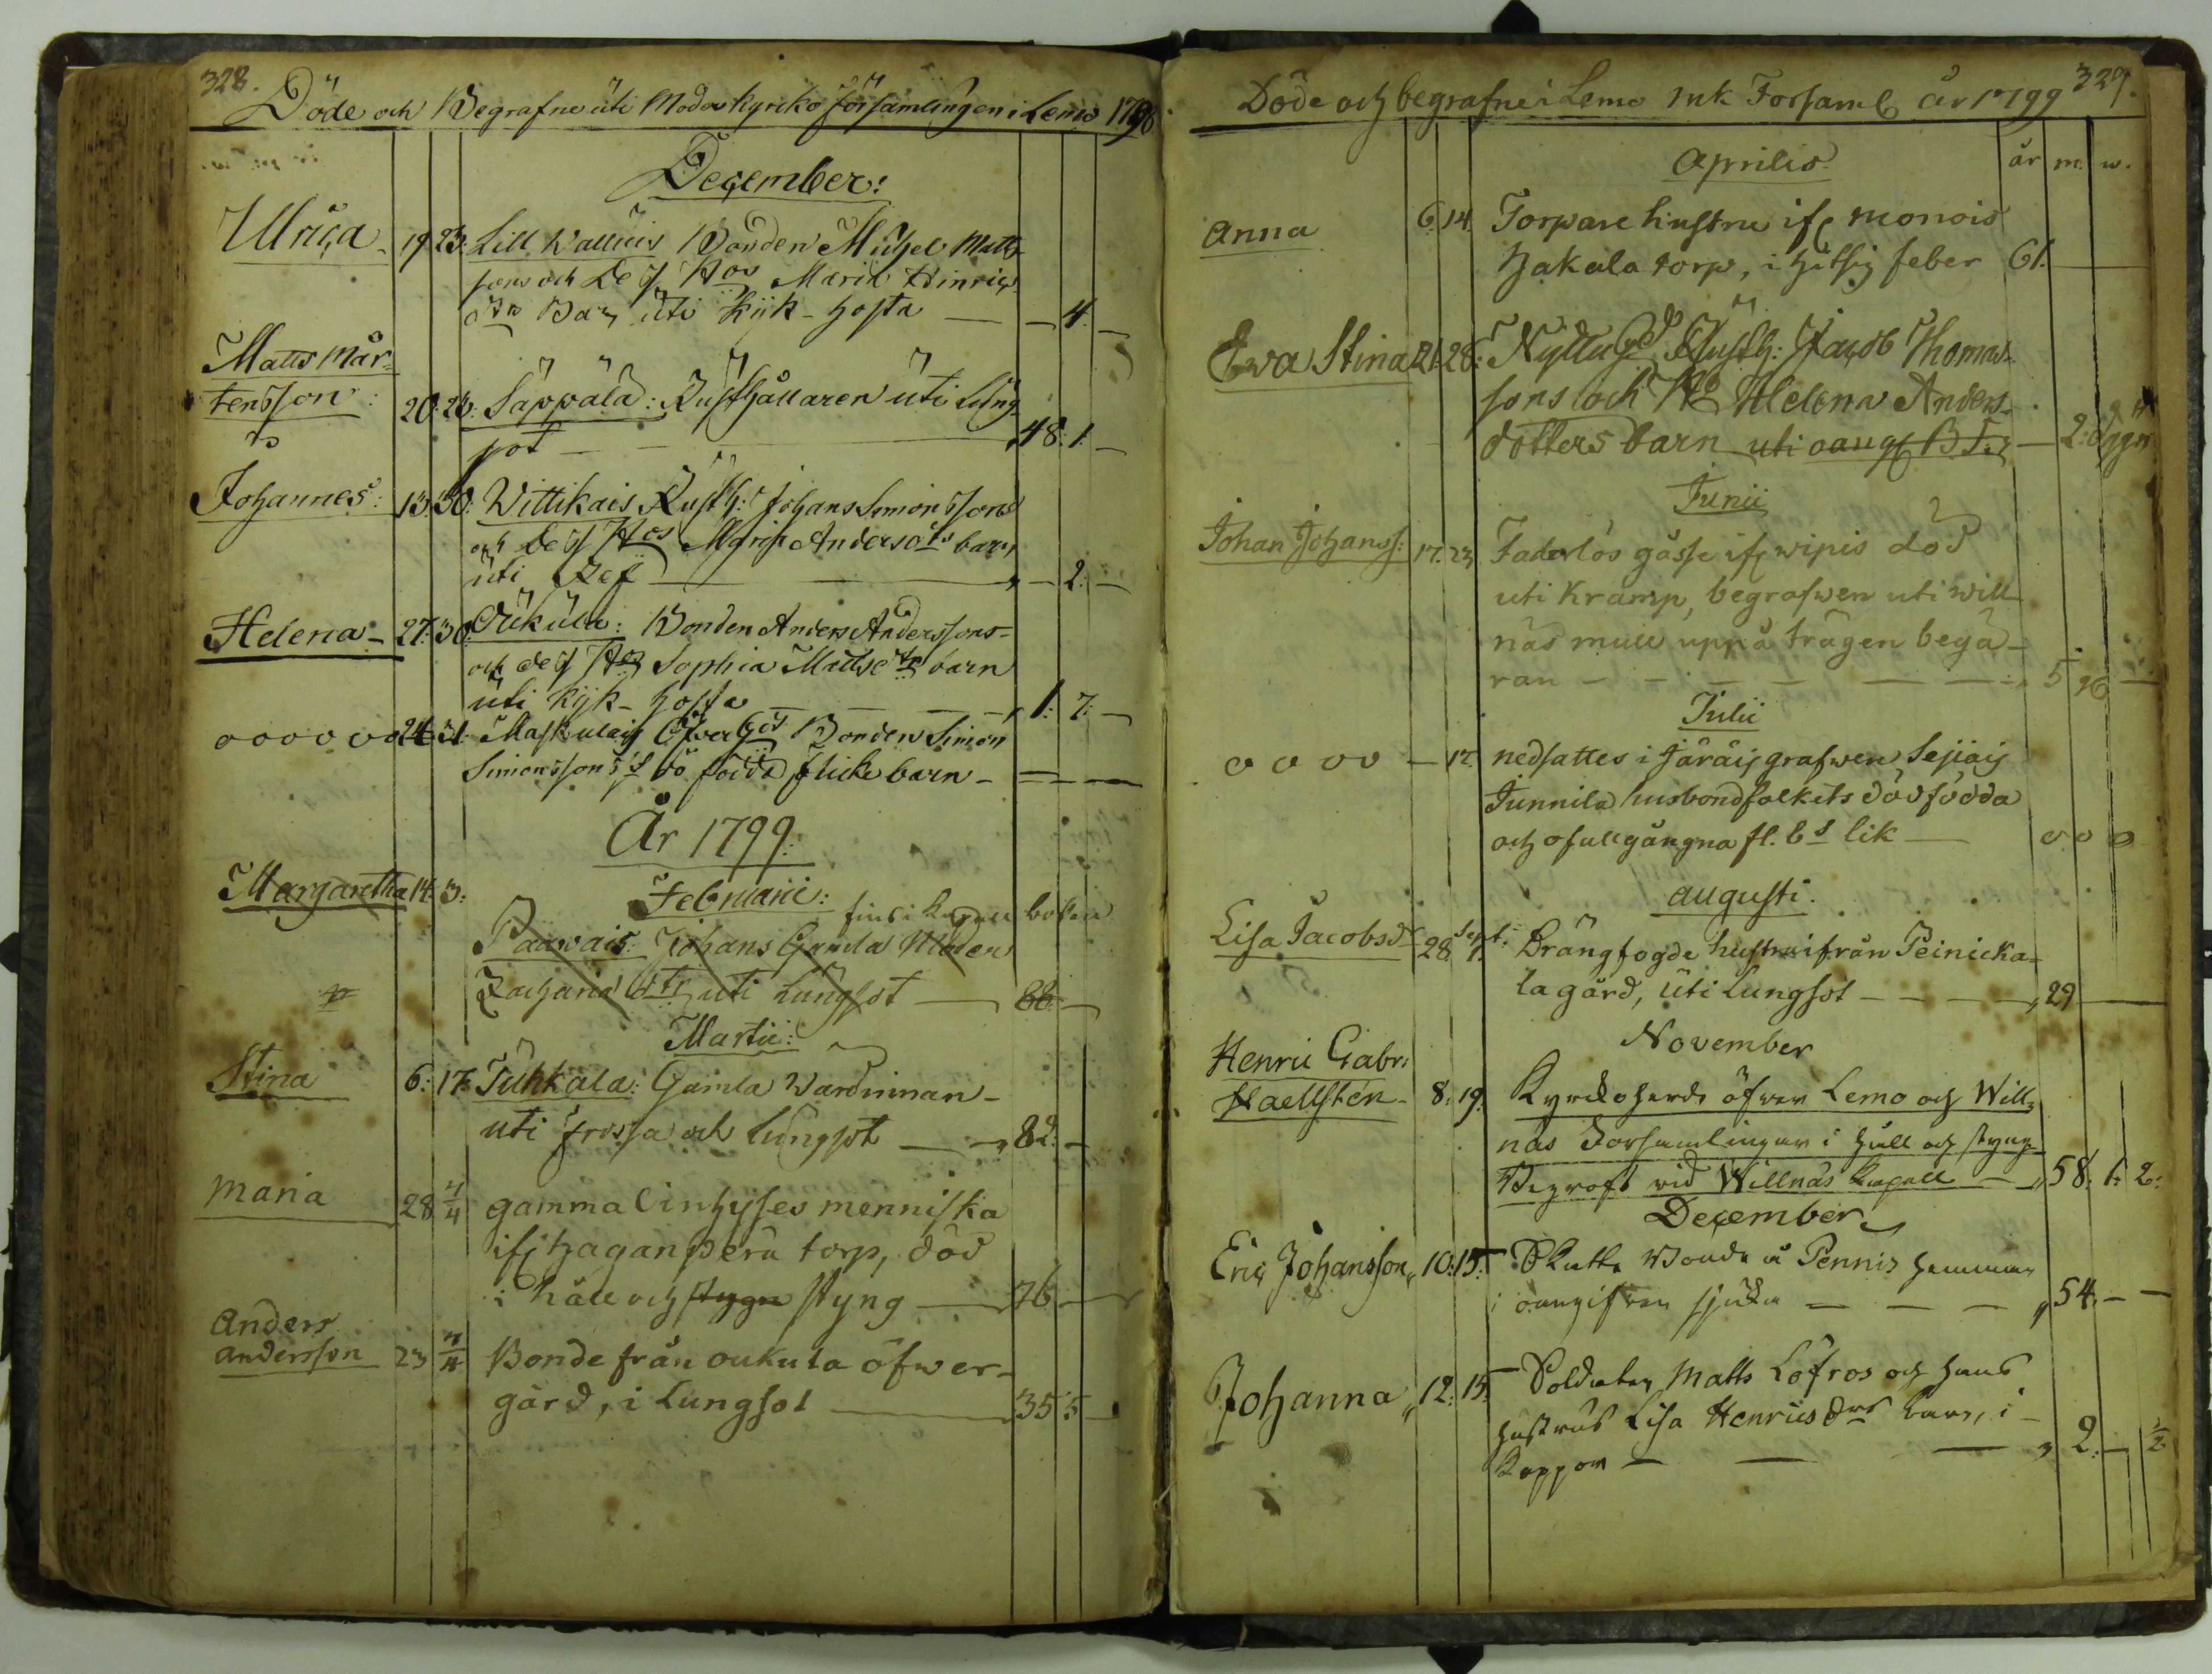 328.
Döde och Begrafne uti Moder Kyrko församlingen i Lemo 1798
December:
Ulrica 19 23: Lill Wallais Bonden Michel Matts
sons och deß Hos Maria Hinrics
dtrs Barn uti kijk-hosta — — 4. —
Matts Mår-
tensson: 20: 26: Säppälä: Rusthållaren uti Lung
sot — — 48: 1: —
Johannes: 13 30: Wittikais Rusth: Johans Simonssons
och deß Hos Maria Andersdtrs barn
uti — — 2: —
Helena 27: 30: Oukula: Bonden Anders Anderssons
och deß Hos Sophia Mattsdtrs barn
uti kijk-hosta — 1: 7: —
o o o o o o 24 31: Maskulais Öfverg:ds Bonden Simon
Simonssons dö födda flicke barn — — —
År 1799:
Februarii:
Margaretha 14: 3: fins i boken
Paavais: Johans Gamla Moder
Zachariæ dtr uti Lungsot — 66 —
Martii:
Stina 6: 17: Tuhkala: Gamla Wardinnan
uti frossa och lungsot — 82: —
Maria 28 7/4 gamma l inhyses menniska
ifr Haganperä torp, död
i håll och stygn styng — 76 —
Anders
andersson 23 7/4 Bonde från oukula öfwer-
gård, i Lungsot — 35 5 —
329.
Döde och begrafne i Lemo mk Forsaml år 1799
Aprilis år m. w.
Anna 6 14 Torpare hustru ifr monois
Hakala torp, i hitsig feber 61. —
Ewa Stina 21 28: Nyttugd Rusth: Jacob Thomas
sons och Ho Helena Anders-
dotters barn uti oang — 2: dygn
Junii
Johan Johanss: 17. 23 Faderlös gåsse ifr wipis död
uti kramp, begrafwen uti will-
näs mull uppå trägen begä-
ran — 5 96 —
Julii
o o o o — 17 nedsattes i Järäis grafwen Sejiais
Junnila husbondfolkets dödfödda
och ofullgångna fl. bs lik — o o o
Augusti.
Lisa Jacobsdr 28 Sept. 1. Drängfogde hustru ifrån Peinicka-
la gård, uti Lungsot — 29 —
November
Henric Gabr:
Haellstén 8: 19. Kyrckoherde öfwer Lemo och Will-
näs Forsamlingar i håll och styng
Begrafv vid Willnäs Kapell — 58. 1: 2:
December
Eric Johansson 10: 15: Skatte Bonde å Pennis hemman
i oangifven sjuka — — — 54. — —
Johanna 12: 15: Soldaten Matts Löfros och hans
hustrus Lisa Henricsdrs barn, i
Koppor — — 2: — 1/2